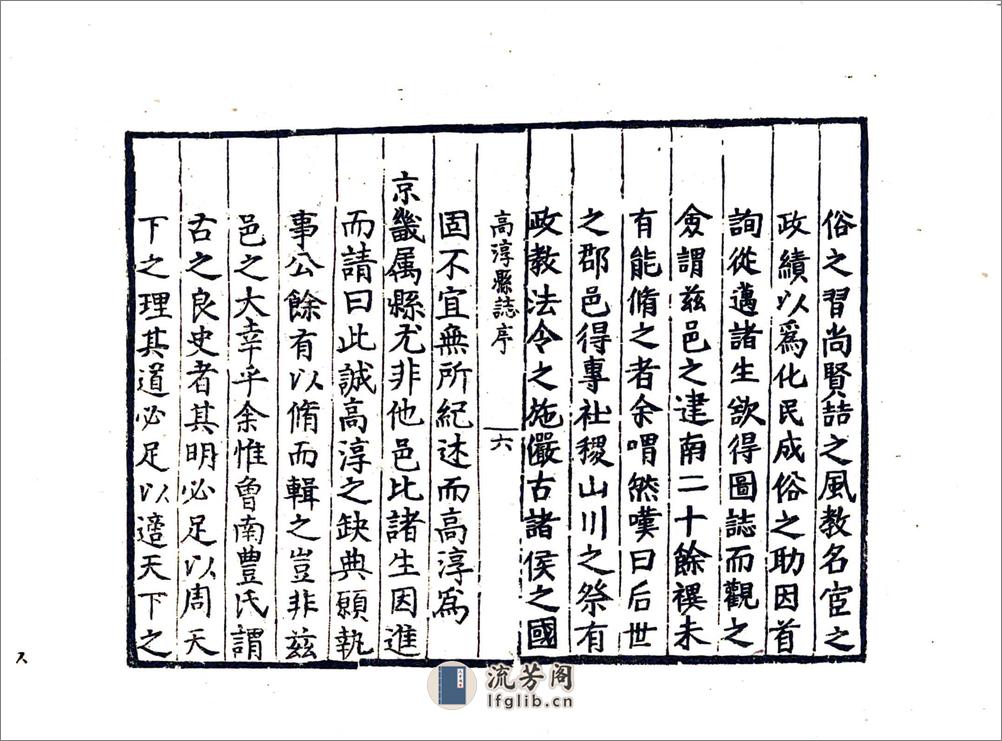 俗之習尚賢喆之風教名宦之
政績以爲化民成俗之助因首
詢從邁諸生欲得圖誌而觀之
僉謂兹邑之建甫二十餘禩未
有能脩之者余喟然嘆曰后世
之郡邑得專社稷山川之祭有
政教法令之施儼古諸侯之國
高淳縣誌序
六
固不宜無所紀述而高淳爲
京畿属縣尤非他邑比諸生因進
而請曰此誠高淳之缺典願執
事公餘有以脩而輯之豈非兹
邑之大幸乎余惟曾南豊氏謂
古之良史者其明必足以周天
下之理其道必足以適天下之
流芳阁
lfglib.cn